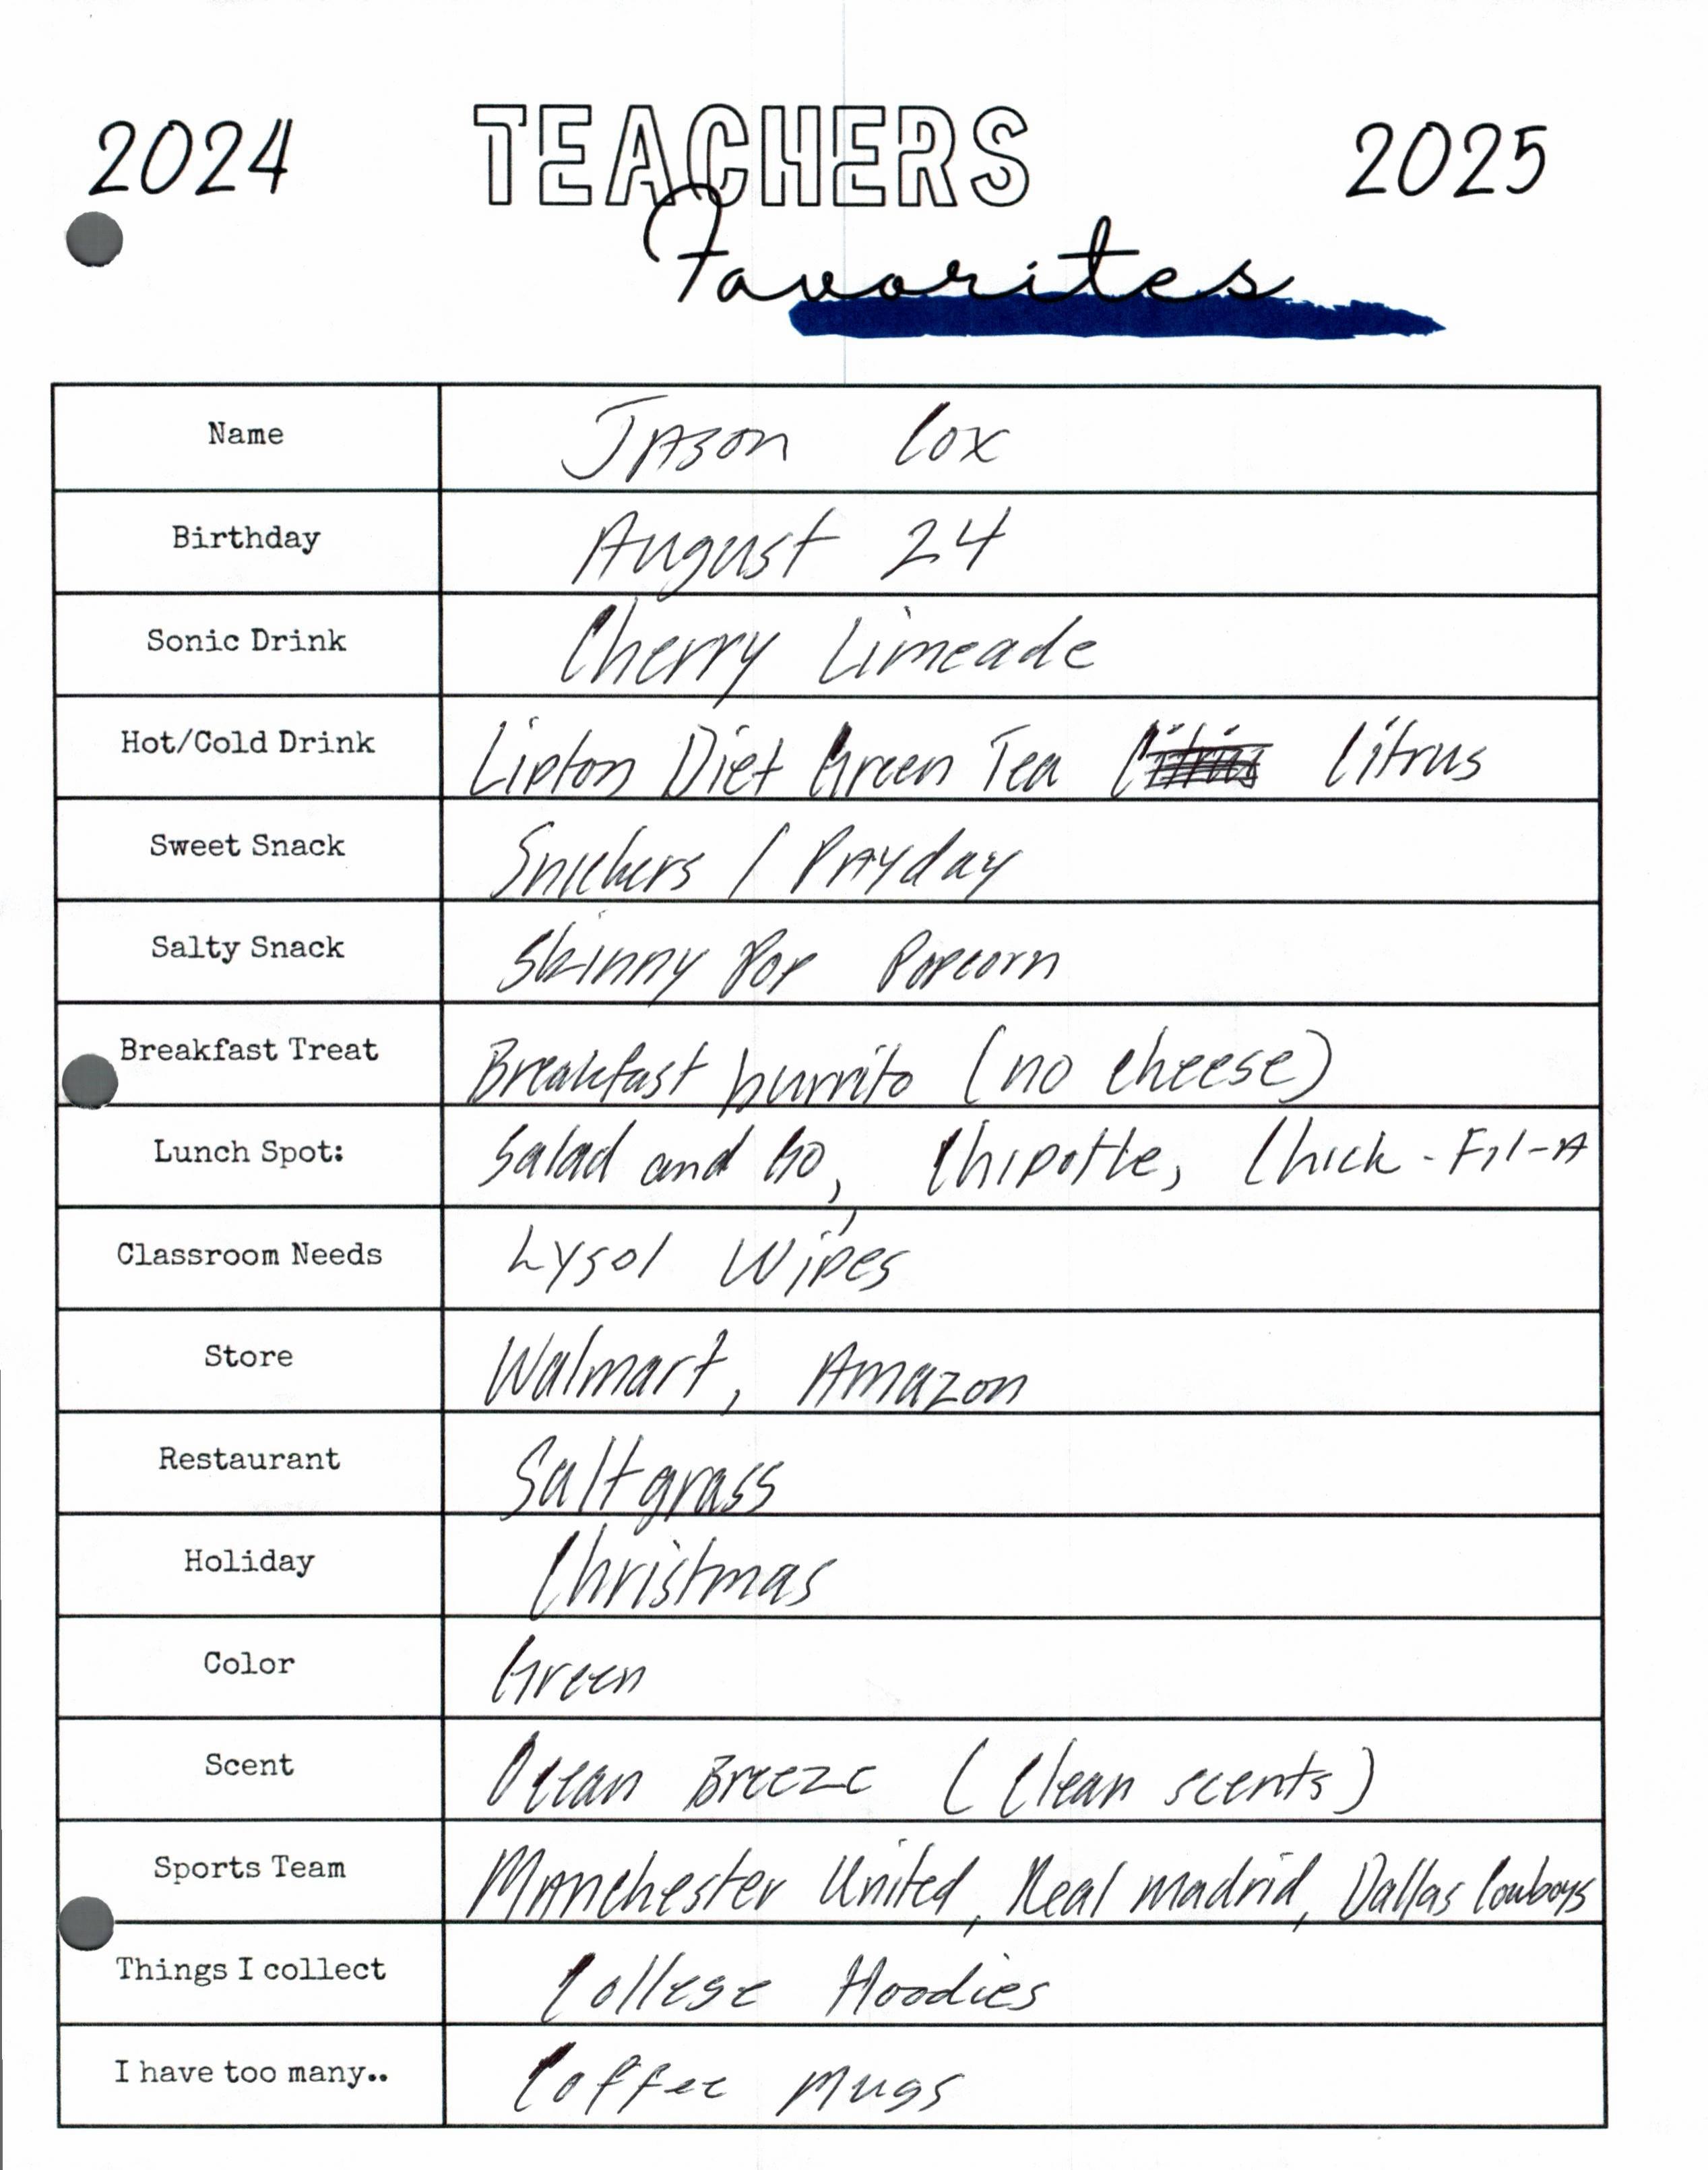 2024 TEACHERS 2025
Favorites
Name Jason Cox
Birthday August 24
Sonic Drink Cherry Limeade
Hot/Cold Drink Lipton Diet Green Tea Citrus Citrus
Sweet Snack Snickers / Payday
Salty Snack Skinny Pop Popcorn
Breakfast Treat Breakfast burrito (no cheese)
Lunch Spot: Salad and Go, Chipotle, Chick-Fil-A
Classroom Needs Lysol Wipes
Store Walmart, Amazon
Restaurant Saltgrass
Holiday Christmas
Color Green
Scent Ocean Breeze (Clean scents)
Sports Team Manchester United, Real Madrid, Dallas Cowboys
Things I collect College Hoodies
I have too many.. Coffee Mugs